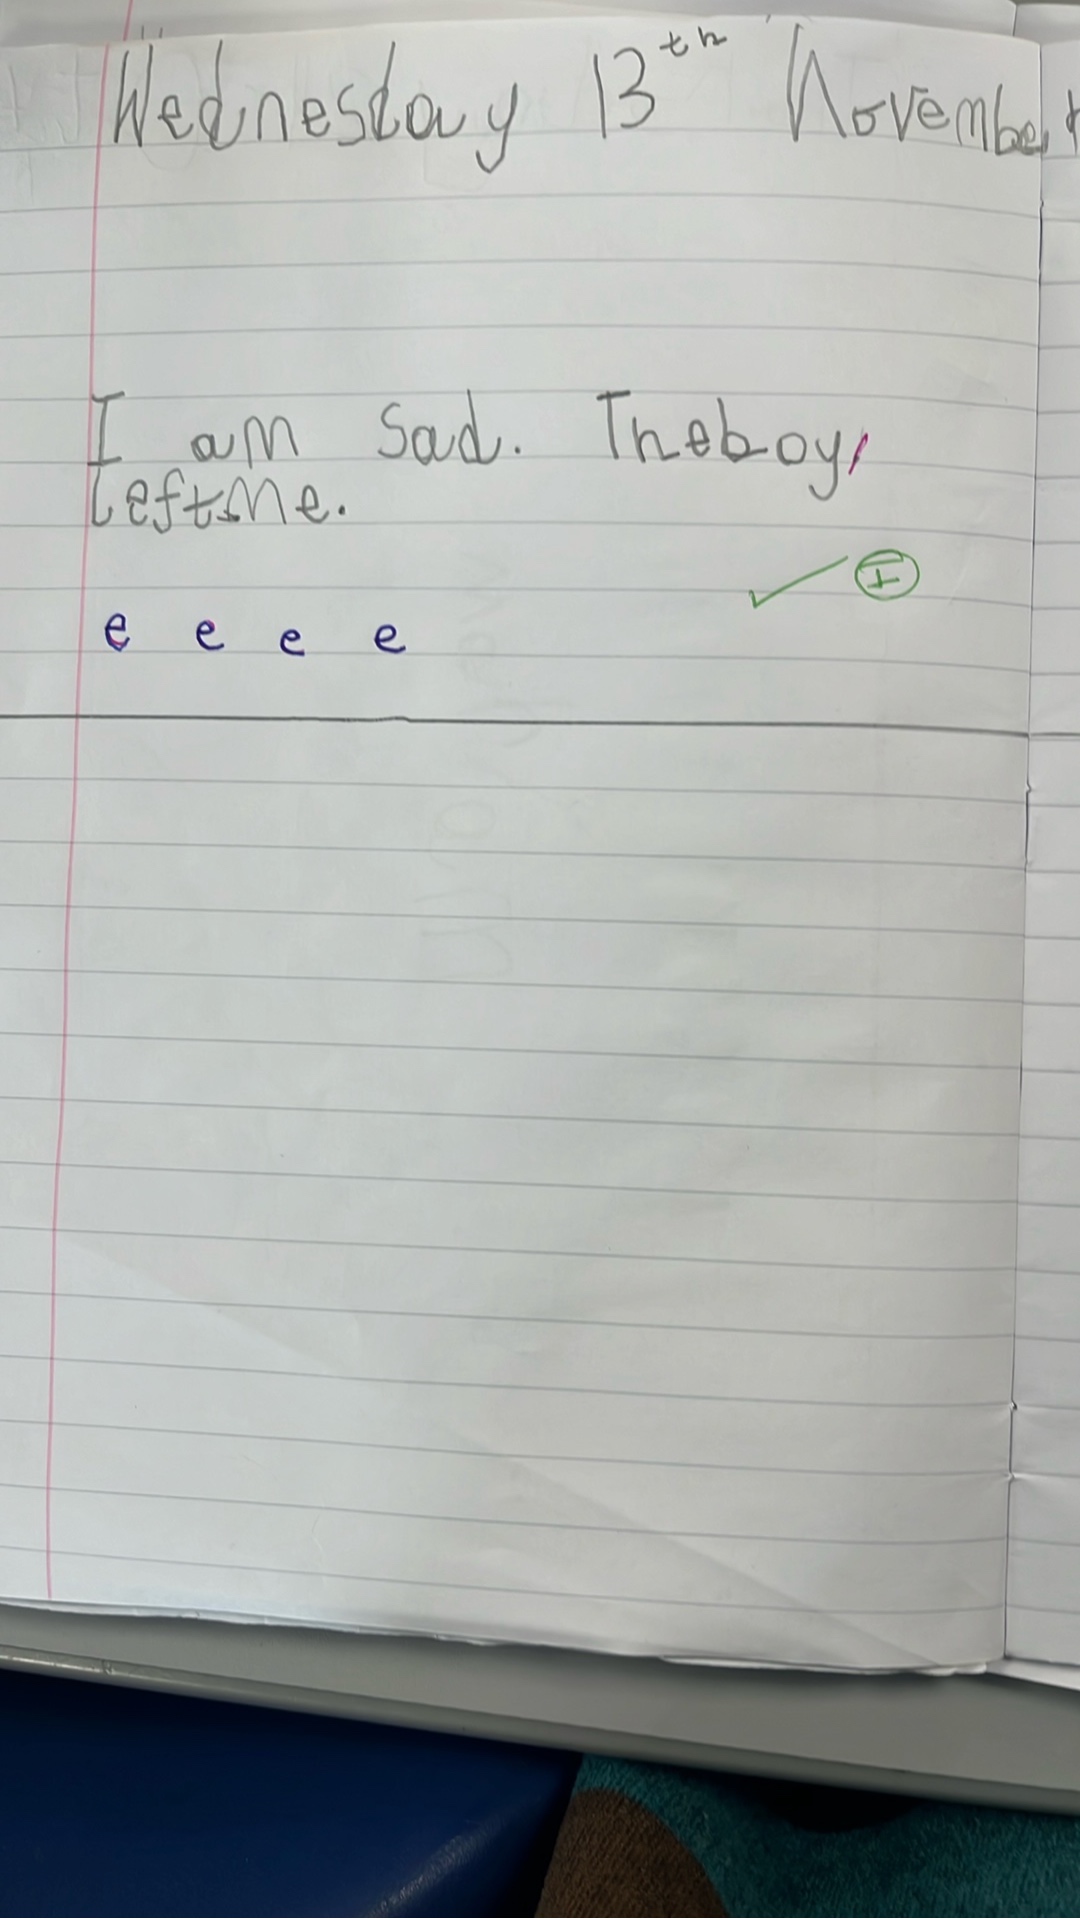 Wednesday 13th November
I am Sad. Theboy
leftme.
I
e e e e